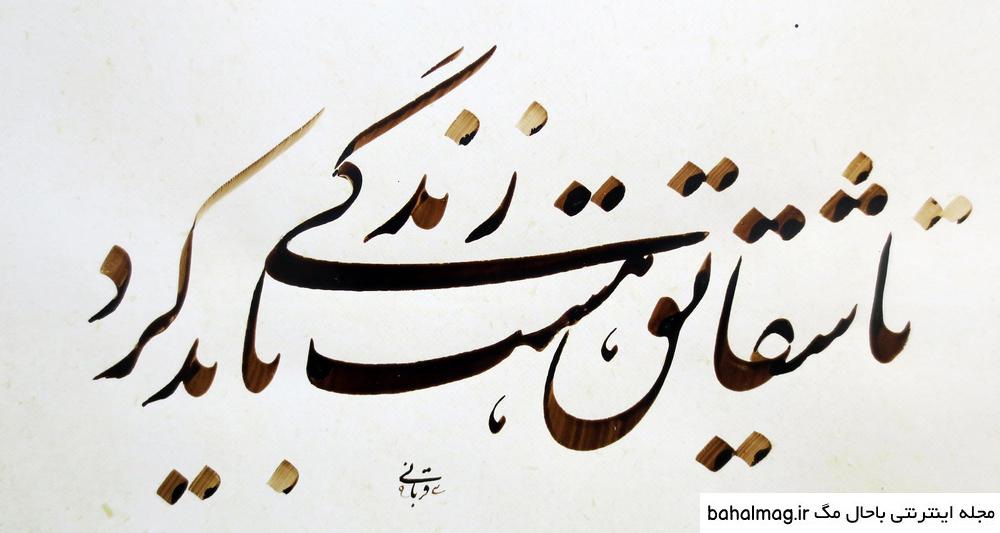 تا شقایق هست زندگی باید کرد
قربانی
مجله اینترنتی باحال مگ bahalmag.ir